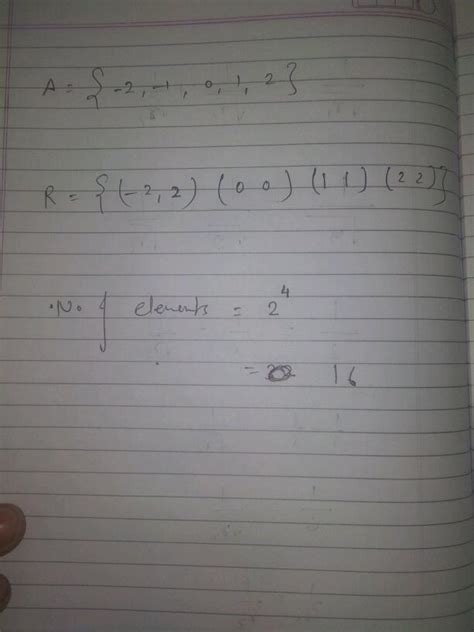 A = { -2, -1, 0, 1, 2 }
R = { (-2, 2) (0 0) (1 1) (2 2) }
.No. of elements = 2^4
= 16